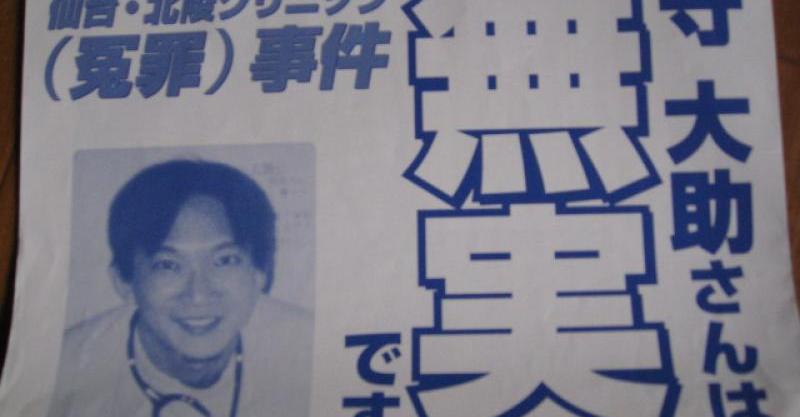 仙台・北陵クリニック
（冤罪）事件
守 大助さんは
無実
です